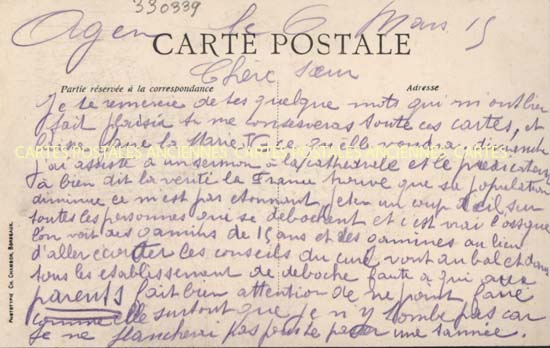 330339
Agen le 6 Mars 15
CARTE POSTALE
Chère sœur
Partie réservée à la correspondance
Adresse
Je te remercie de tes quelque mots qui m'ont bien
fait plaisir tu me conserveras toute ces cartes, et
CARTES POSTALES ANCIENNES CARTES POSTALES ANCIENNES
J'ai assisté à un sermon à la cathédrale et le prédicateur
à bien dit la vérité la France trouve que sa population
diminue ce n'est pas étonnant, jeter un coup d'œil sur
toutes les personnes qui se débochent et c'est vrai lorsque
l'on voit des gamins de 15 ans et des gamines au lieu
d'aller écouter les conseils du curé vont au bal et dans
tous les établissement de déboche faute à qui aux
parents fait bien attention de ne point faire
comme elle surtout que je n'y tombe pas car
je ne flancherai pas pour te payer une tannée.
PHOTOTYPIE CH. CHAMBON, BORDEAUX.